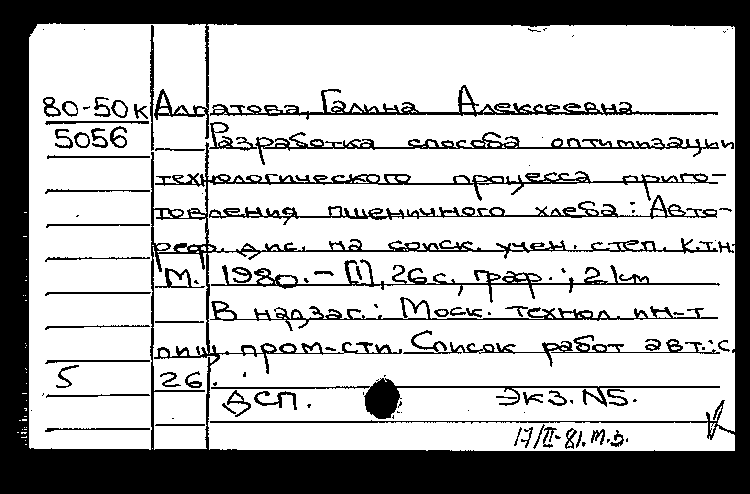 80-50к Алпатова, Галина Алексеевна
5056 Разработка способа оптимизации
технологического процесса приго-
товления пшеничного хлеба: Авто-
реф. дис. на соиск. учен. степ. к.т.н.
М. 1980. - [1], 26 с., граф.; 21 см
В надзаг.: Моск. технол. ин-т
пищ. пром-сти. Список работ авт.: с.
5 26.
ДСП. Экз. N5.
17/II-81. т.з.